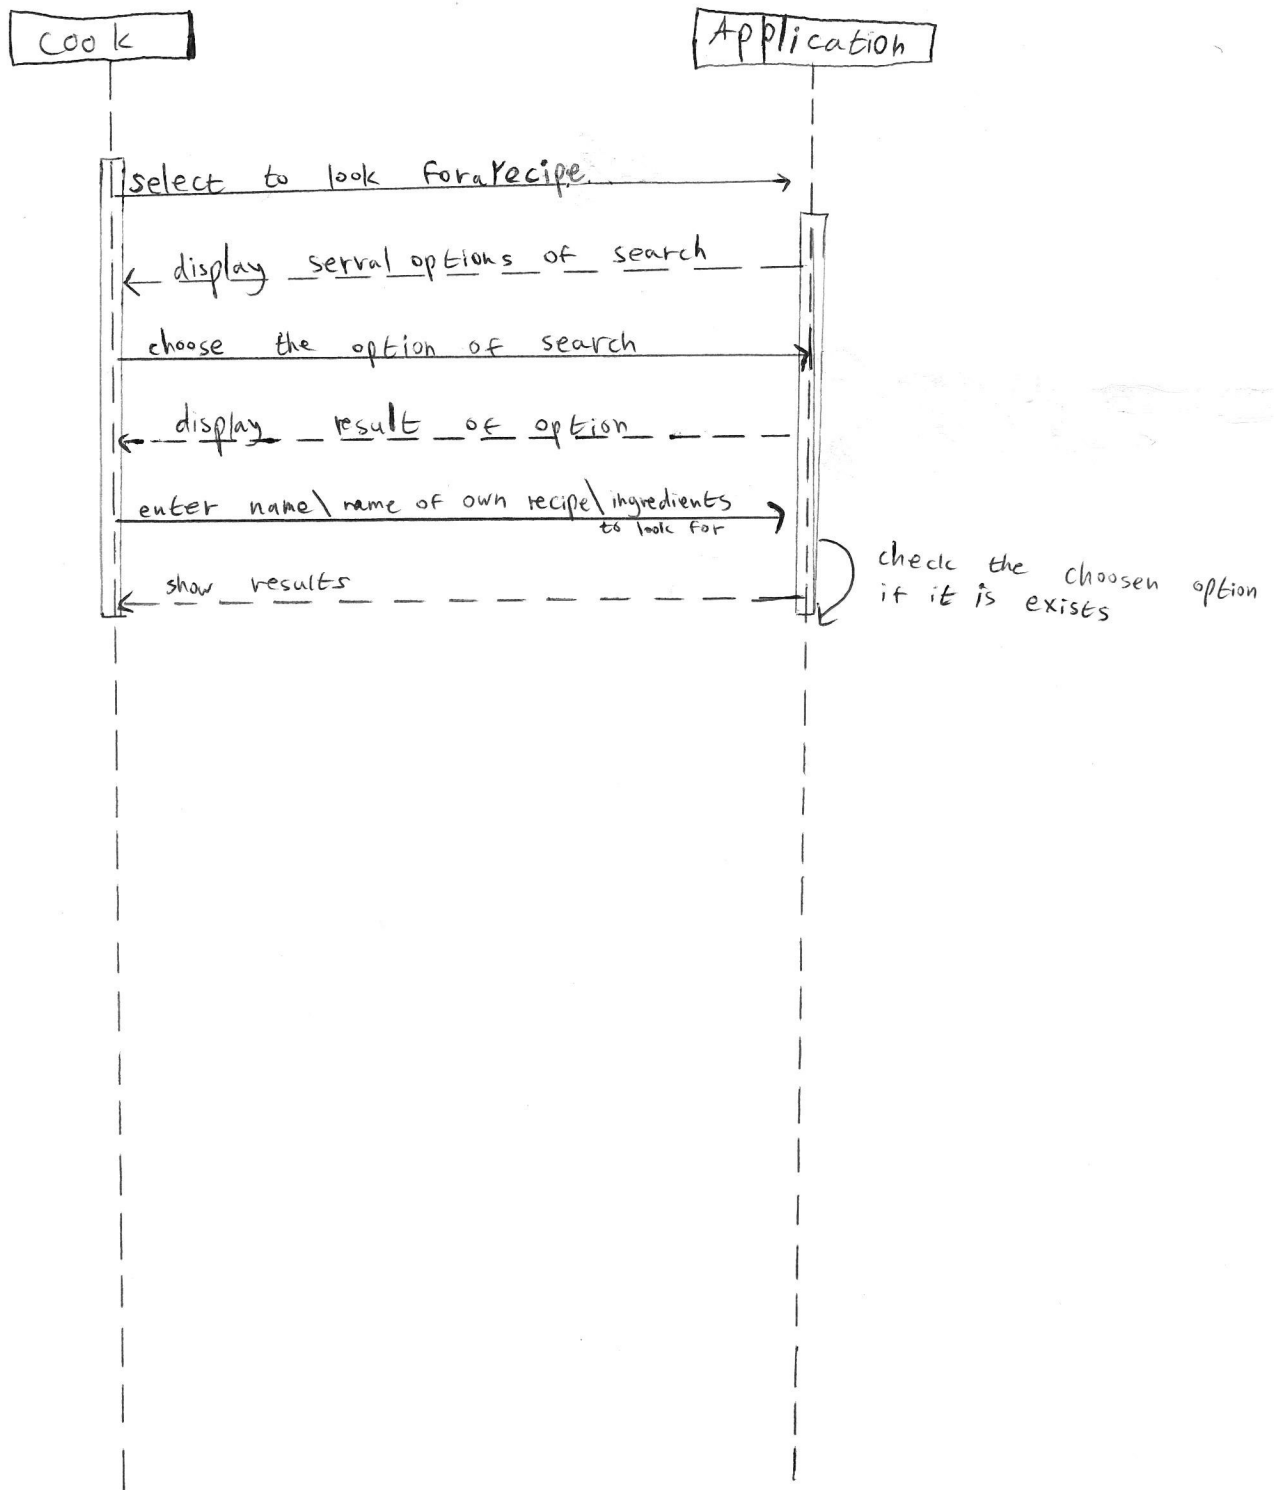 cook
Application
select to look for a recipe
display serval options of search
choose the option of search
display result of option
enter name\ name of own recipe\ ingredients
to look for
check the choosen option
if it is exists
show results